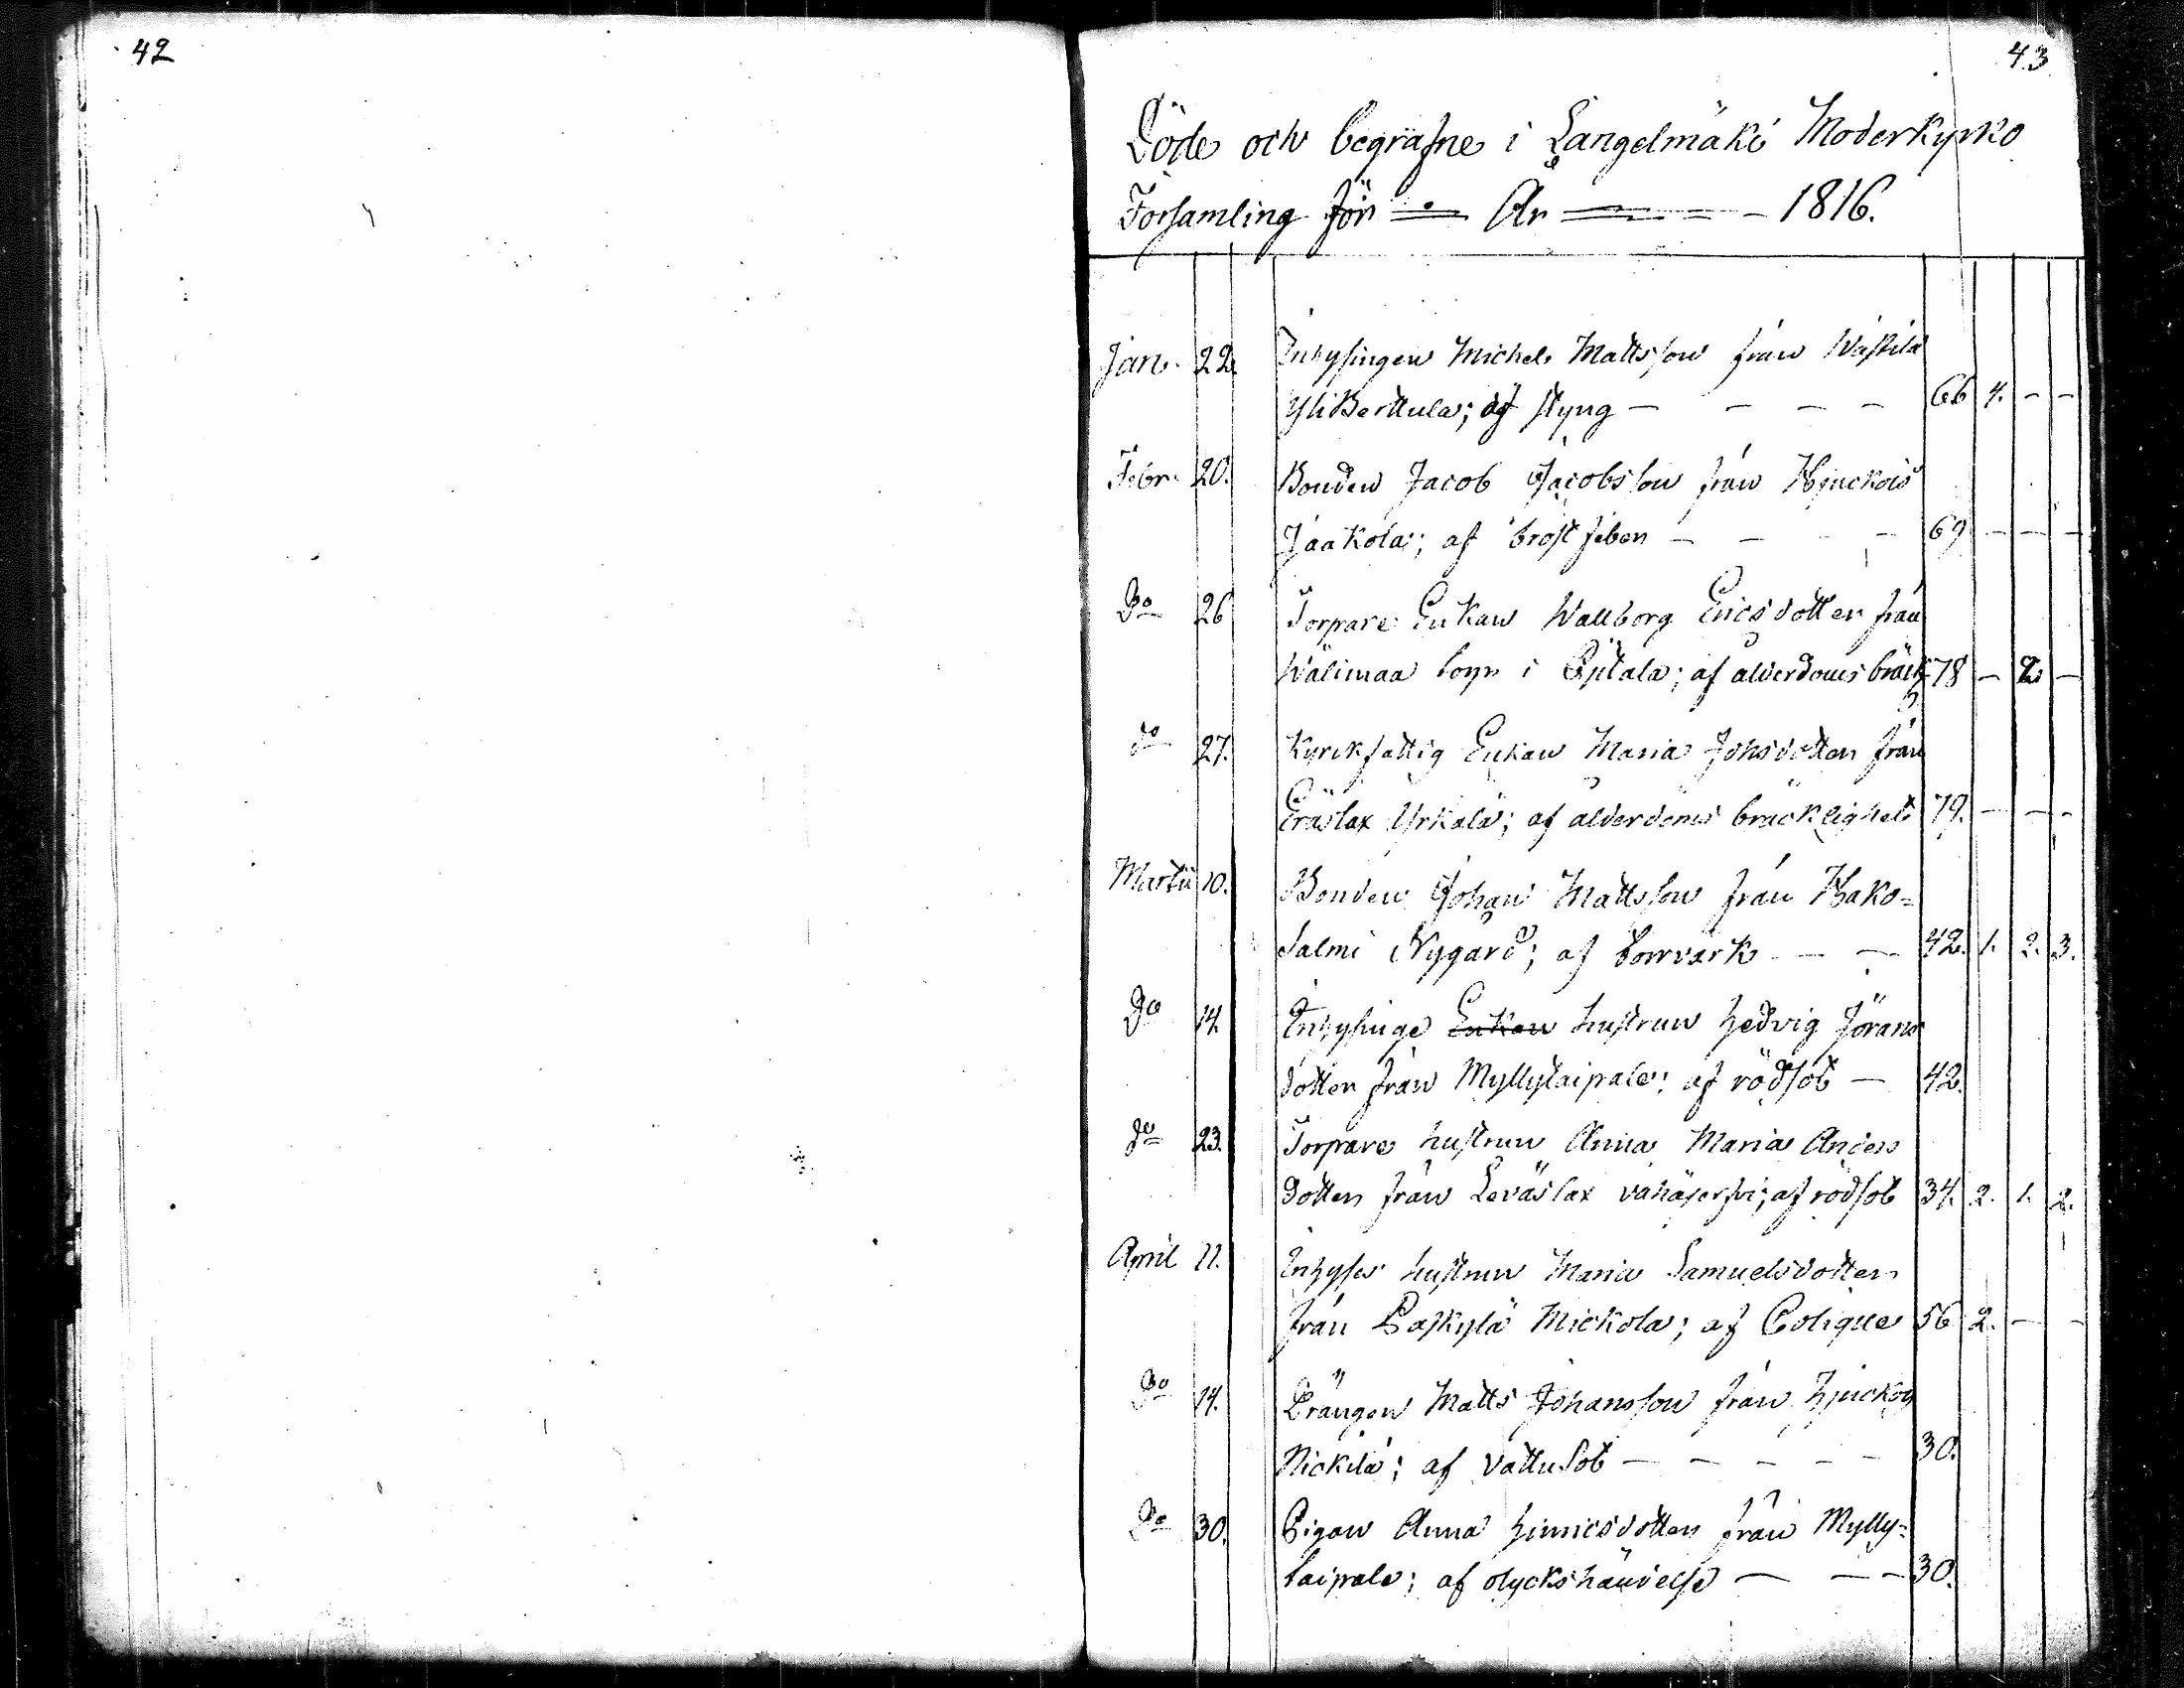 42
43
Döde och begrafne i Längelmäki Moderkyrko
Församling för År 1816.
Jan. 22. Inhysingen Michel Mattsson från Wästilä
Yli Berttula; af styng — — — — 66 4. — —
Febr. 20. Bonden Jacob Jacobsson från
Jaakola; af bröst feber — — — — 69 — — —
Do 26 Torpare Enkan Wallborg Ericsdotter från
Wälimaa torp i ; af alderdoms bräckl. 78 — 2 —
do 27. Kyrckfattig Enkan Maria Johsdotter från
Eräslax Yrkälä; af alderdoms bräcklighet 79. — — —
Martii 10. Bonden Johan Mattsson från Hako-
salmi Nygård; af torrvärk — — 42. 1. 2. 3.
Do 14. Inhysinge Enkan hustrun Hedvig Jörans
dotter från Myllytaipale; af rödsot — 42.
do 23. Torpare hustrun Anna Maria Anders
dotter från Leväslax vahäjerfvi; af rödsot 34. 2. 1. 2.
April 11. Inhyses hustrun Maria Samuelsdotter
från Paskylä Mickola; af Colique 56 2. — —
Do 14. Drängen Matts Johansson från
Nickilä; af vattusot — — — — — 30.
Do 30. Pigan Anna Hinricsdotter från Mylly-
taipale; af olyckshändelse — — — 30.